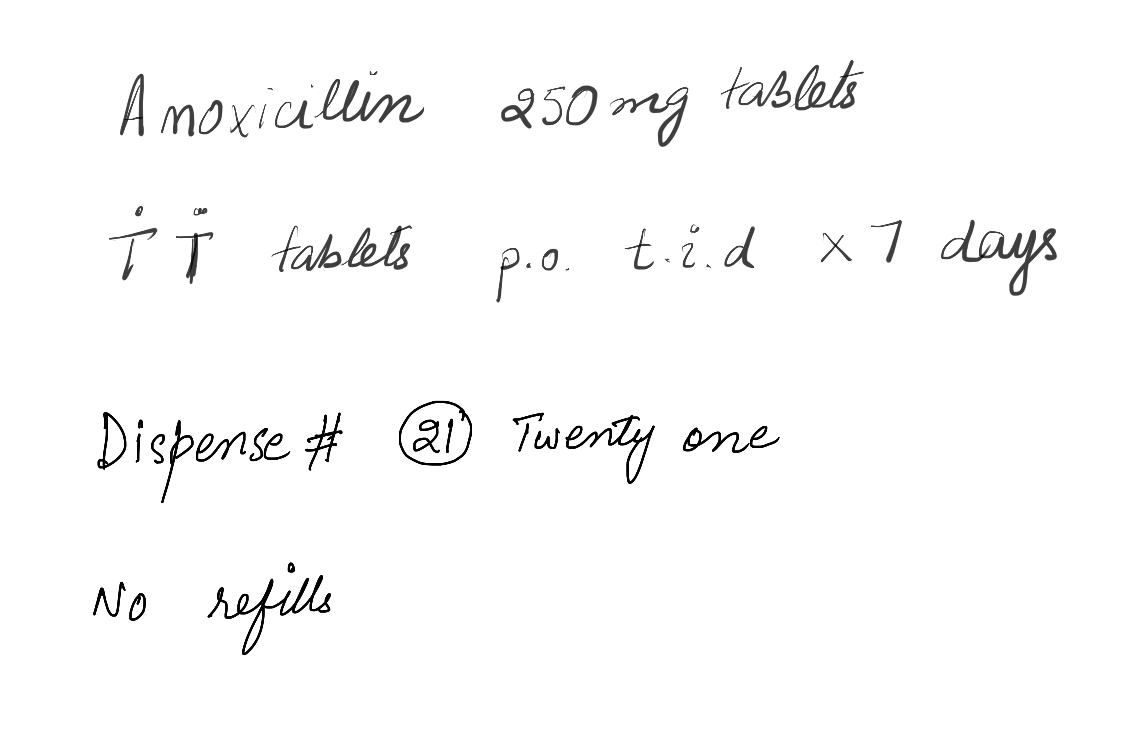 Amoxicillin 250mg tablets
T̊ T̈ tablets p.o. t.i.d x 7 days
Dispense # 21 Twenty one
No refills